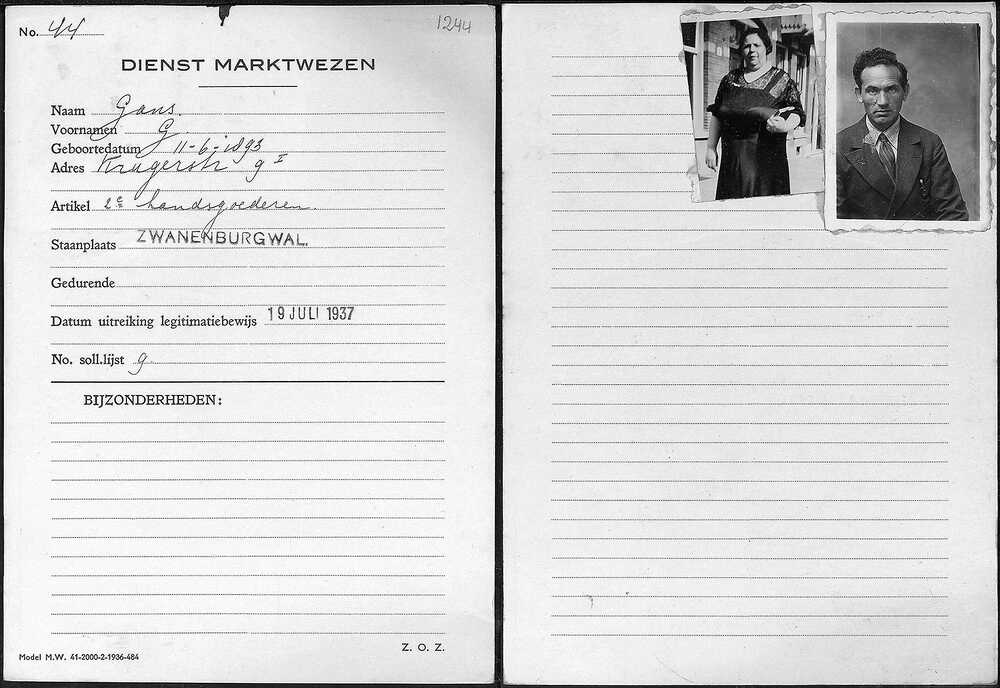 No. 44
1244
DIENST MARKTWEZEN
Naam Gans.
Voornamen G.
Geboortedatum 11-6-1893
Adres Krugerstr 9 I
Artikel 2e handsgoederen.
Staanplaats ZWANENBURGWAL.
Gedurende
Datum uitreiking legitimatiebewijs 19 JULI 1937
No. soll.lijst 9
BIJZONDERHEDEN:
Z. O. Z.
Model M.W. 41-2000-2-1936-484